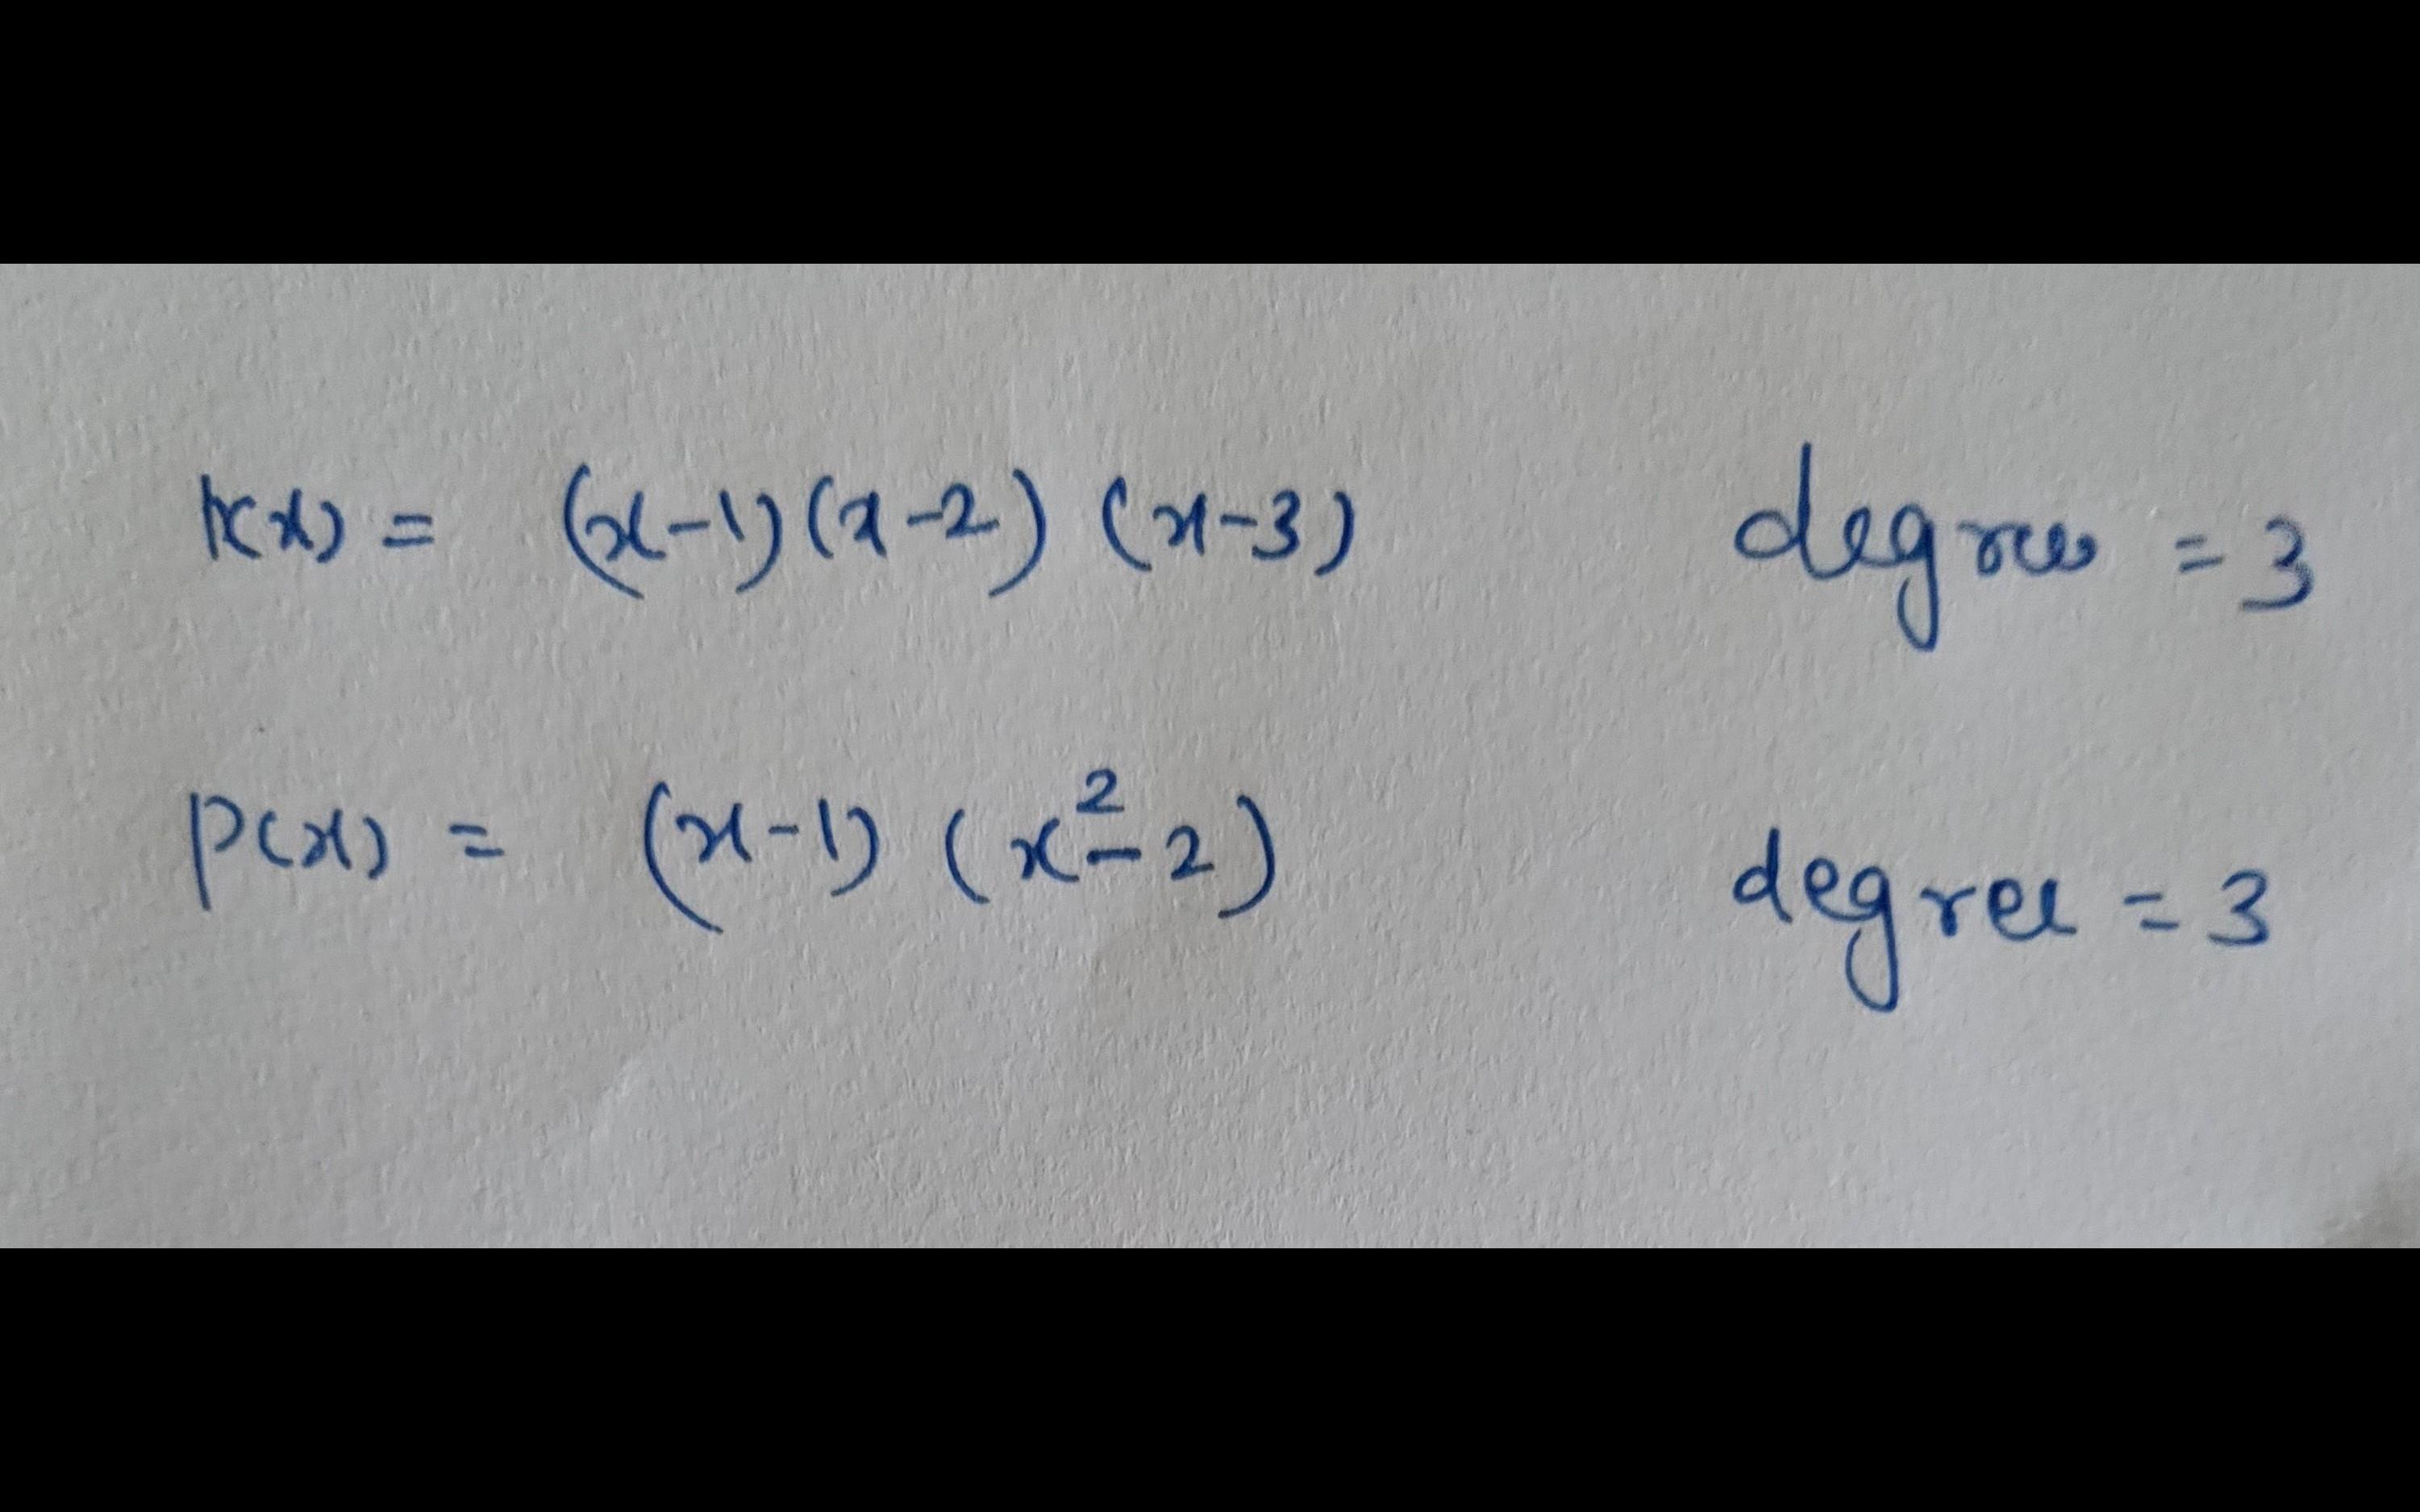 k(x) = (x-1)(x-2) (x-3) degree = 3
p(x) = (x-1) (x²-2) degree = 3